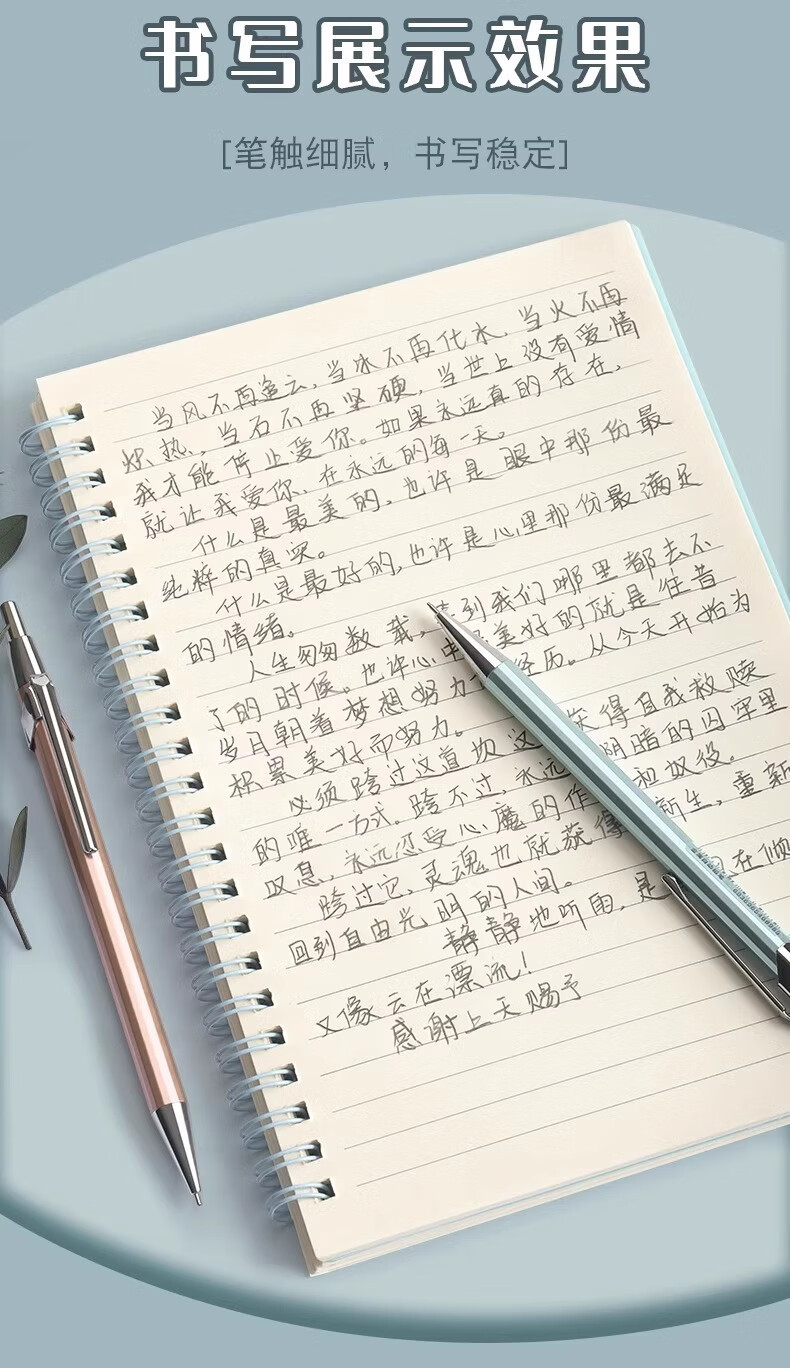 书写展示效果
[笔触细腻，书写稳定]
当风不再追云，当冰不再化水，当火不再
炽热，当石不再坚硬，当世上没有爱情
我才能停止爱你。如果永远真的存在，
就让我爱你、在永远的每一天。
什么是最美的，也许是眼中那份最
纯粹的真实。
什么是最好的，也许是心里那份最满足
的情绪。
人生匆匆数载，到我们哪里都去不
了的时候。也许心中美好的就是往昔
岁月朝着梦想努力经历。从今天开始为
积累美好而努力。
必须跨过这道坎这获得自我救赎
的唯一方式。跨不过，永远阴暗的囚牢里
叹息，永远忍受心魔的作和奴役。
跨过它，灵魂也就获得新生，重新
回到自由光明的人间。
静静地听雨，是在倾
又像云在漂流！
感谢上天赐予